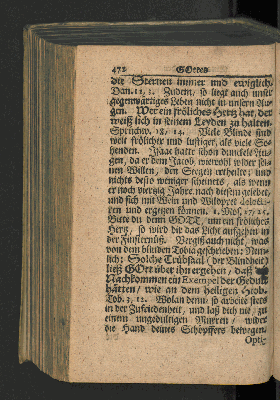 472 GOttes
die Sternen immer und ewiglich.
Dan. 12, 3. Zudem, so liegt auch unser
gegenwärtiges Leben nicht in unsern Au-
gen. Wer ein fröliches Hertz hat, der
weiß sich in seinem Leyden zu halten.
Sprüchw. 18, 14. Viele Blinde sind
weit frölicher und lustiger, als viele Se-
hende. Isaac hatte schon dunckele Au-
gen, da er dem Jacob, wiewohl wider sei-
nen Willen, den Seegen ertheilte; und
nichts desto weniger scheinets, als wenn
er noch viertzig Jahre nach diesem gelebet,
und sich mit Wein und Wildpret
cken und ergetzen können. 1. Mos. 27, 25.
Bitte du denn GOtt, um ein fröliches
Hertz, so wird dir das Licht aufgehen in
der Finsterniß. Vergiß auch nicht, was
von dem blinden Tobia geschrieben: Nem-
lich: Solche Trübsaal (der Blindheit)
ließ GOtt über ihn ergehen, daß
Nachkommen ein Exempel der Gedult
hätten, wie an dem heiligen Hiob.
Tob. 2, 12. Wolan denn, so arbeite stets
in der Zufriedenheit, und laß dich nie zu
einem ungedultigen Murren wider
die Hand deines Schöpffers bewegen.
Opti-